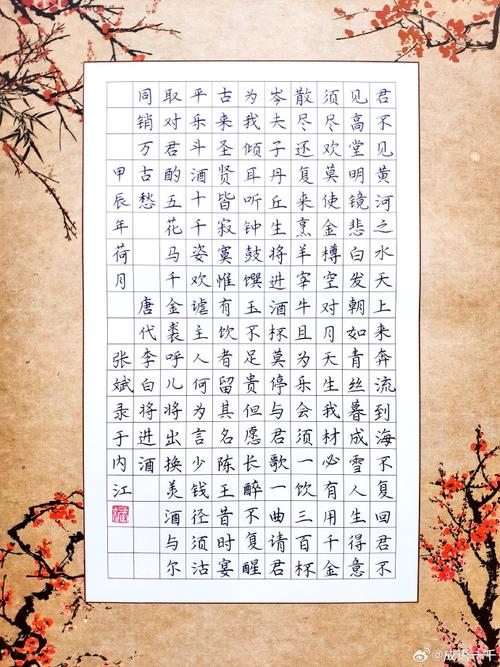 君不见黄河之水天上来奔流到海不复回君不
见高堂明镜悲白发朝如青丝暮成雪人生得意
须尽欢莫使金樽空对月天生我材必有用千金
散尽还复来烹羊宰牛且为乐会须一饮三百杯
岑夫子丹丘生将进酒杯莫停与君歌一曲请君
为我倾耳听钟鼓馔玉不足贵但愿长醉不复醒
古来圣贤皆寂寞惟有饮者留其名陈王昔时宴
平乐斗酒十千姿欢谑主人何为言少钱径须沽
取对君酌五花马千金裘呼儿将出换美酒与尔
同销万古愁 唐代李白将进酒
甲辰年荷月 张斌录于内江
@成语一千